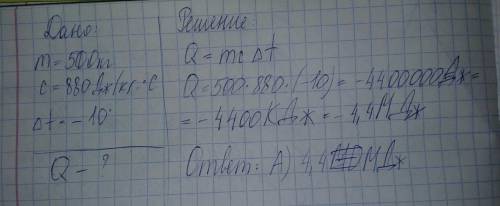 Дано:
m = 500кг
c = 880Дж/кг·°C
Δt = -10°
Q - ?
Решение:
Q = mcΔt
Q = 500·880·(-10) = -4400000Дж =
= -4400КДж = -4,4МДж
Ответ: А) 4,4 МДж